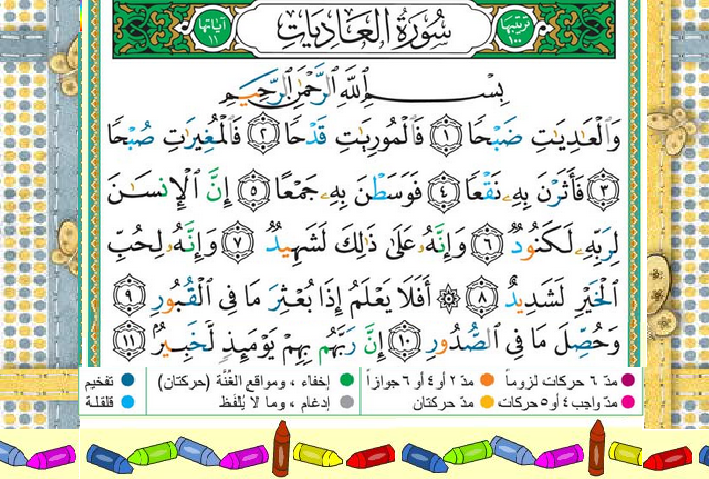 ترتيبها ١٠٠ سُورَةُ الْعَادِيَاتِ آياتها ١١
بِسْمِ ٱللَّهِ ٱلرَّحْمَٰنِ ٱلرَّحِيمِ
وَٱلْعَٰدِيَٰتِ ضَبْحًا ١ فَٱلْمُورِيَٰتِ قَدْحًا ٢ فَٱلْمُغِيرَٰتِ صُبْحًا
٣ فَأَثَرْنَ بِهِۦ نَقْعًا ٤ فَوَسَطْنَ بِهِۦ جَمْعًا ٥ إِنَّ ٱلْإِنسَٰنَ
لِرَبِّهِۦ لَكَنُودٌ ٦ وَإِنَّهُۥ عَلَىٰ ذَٰلِكَ لَشَهِيدٌ ٧ وَإِنَّهُۥ لِحُبِّ
ٱلْخَيْرِ لَشَدِيدٌ ٨ ۞ أَفَلَا يَعْلَمُ إِذَا بُعْثِرَ مَا فِى ٱلْقُبُورِ ٩
وَحُصِّلَ مَا فِى ٱلصُّدُورِ ١٠ إِنَّ رَبَّهُم بِهِمْ يَوْمَئِذٍ لَّخَبِيرٌۢ ١١
مدّ ٦ حركات لزوماً مدّ ٢ أو ٤ أو ٦ جوازاً إخفاء ، ومواقع الغُنَّة (حركتان) تفخيم
مدّ واجب ٤ أو ٥ حركات مدّ حركتان إدغام ، وما لا يُلفَظ قلقلة